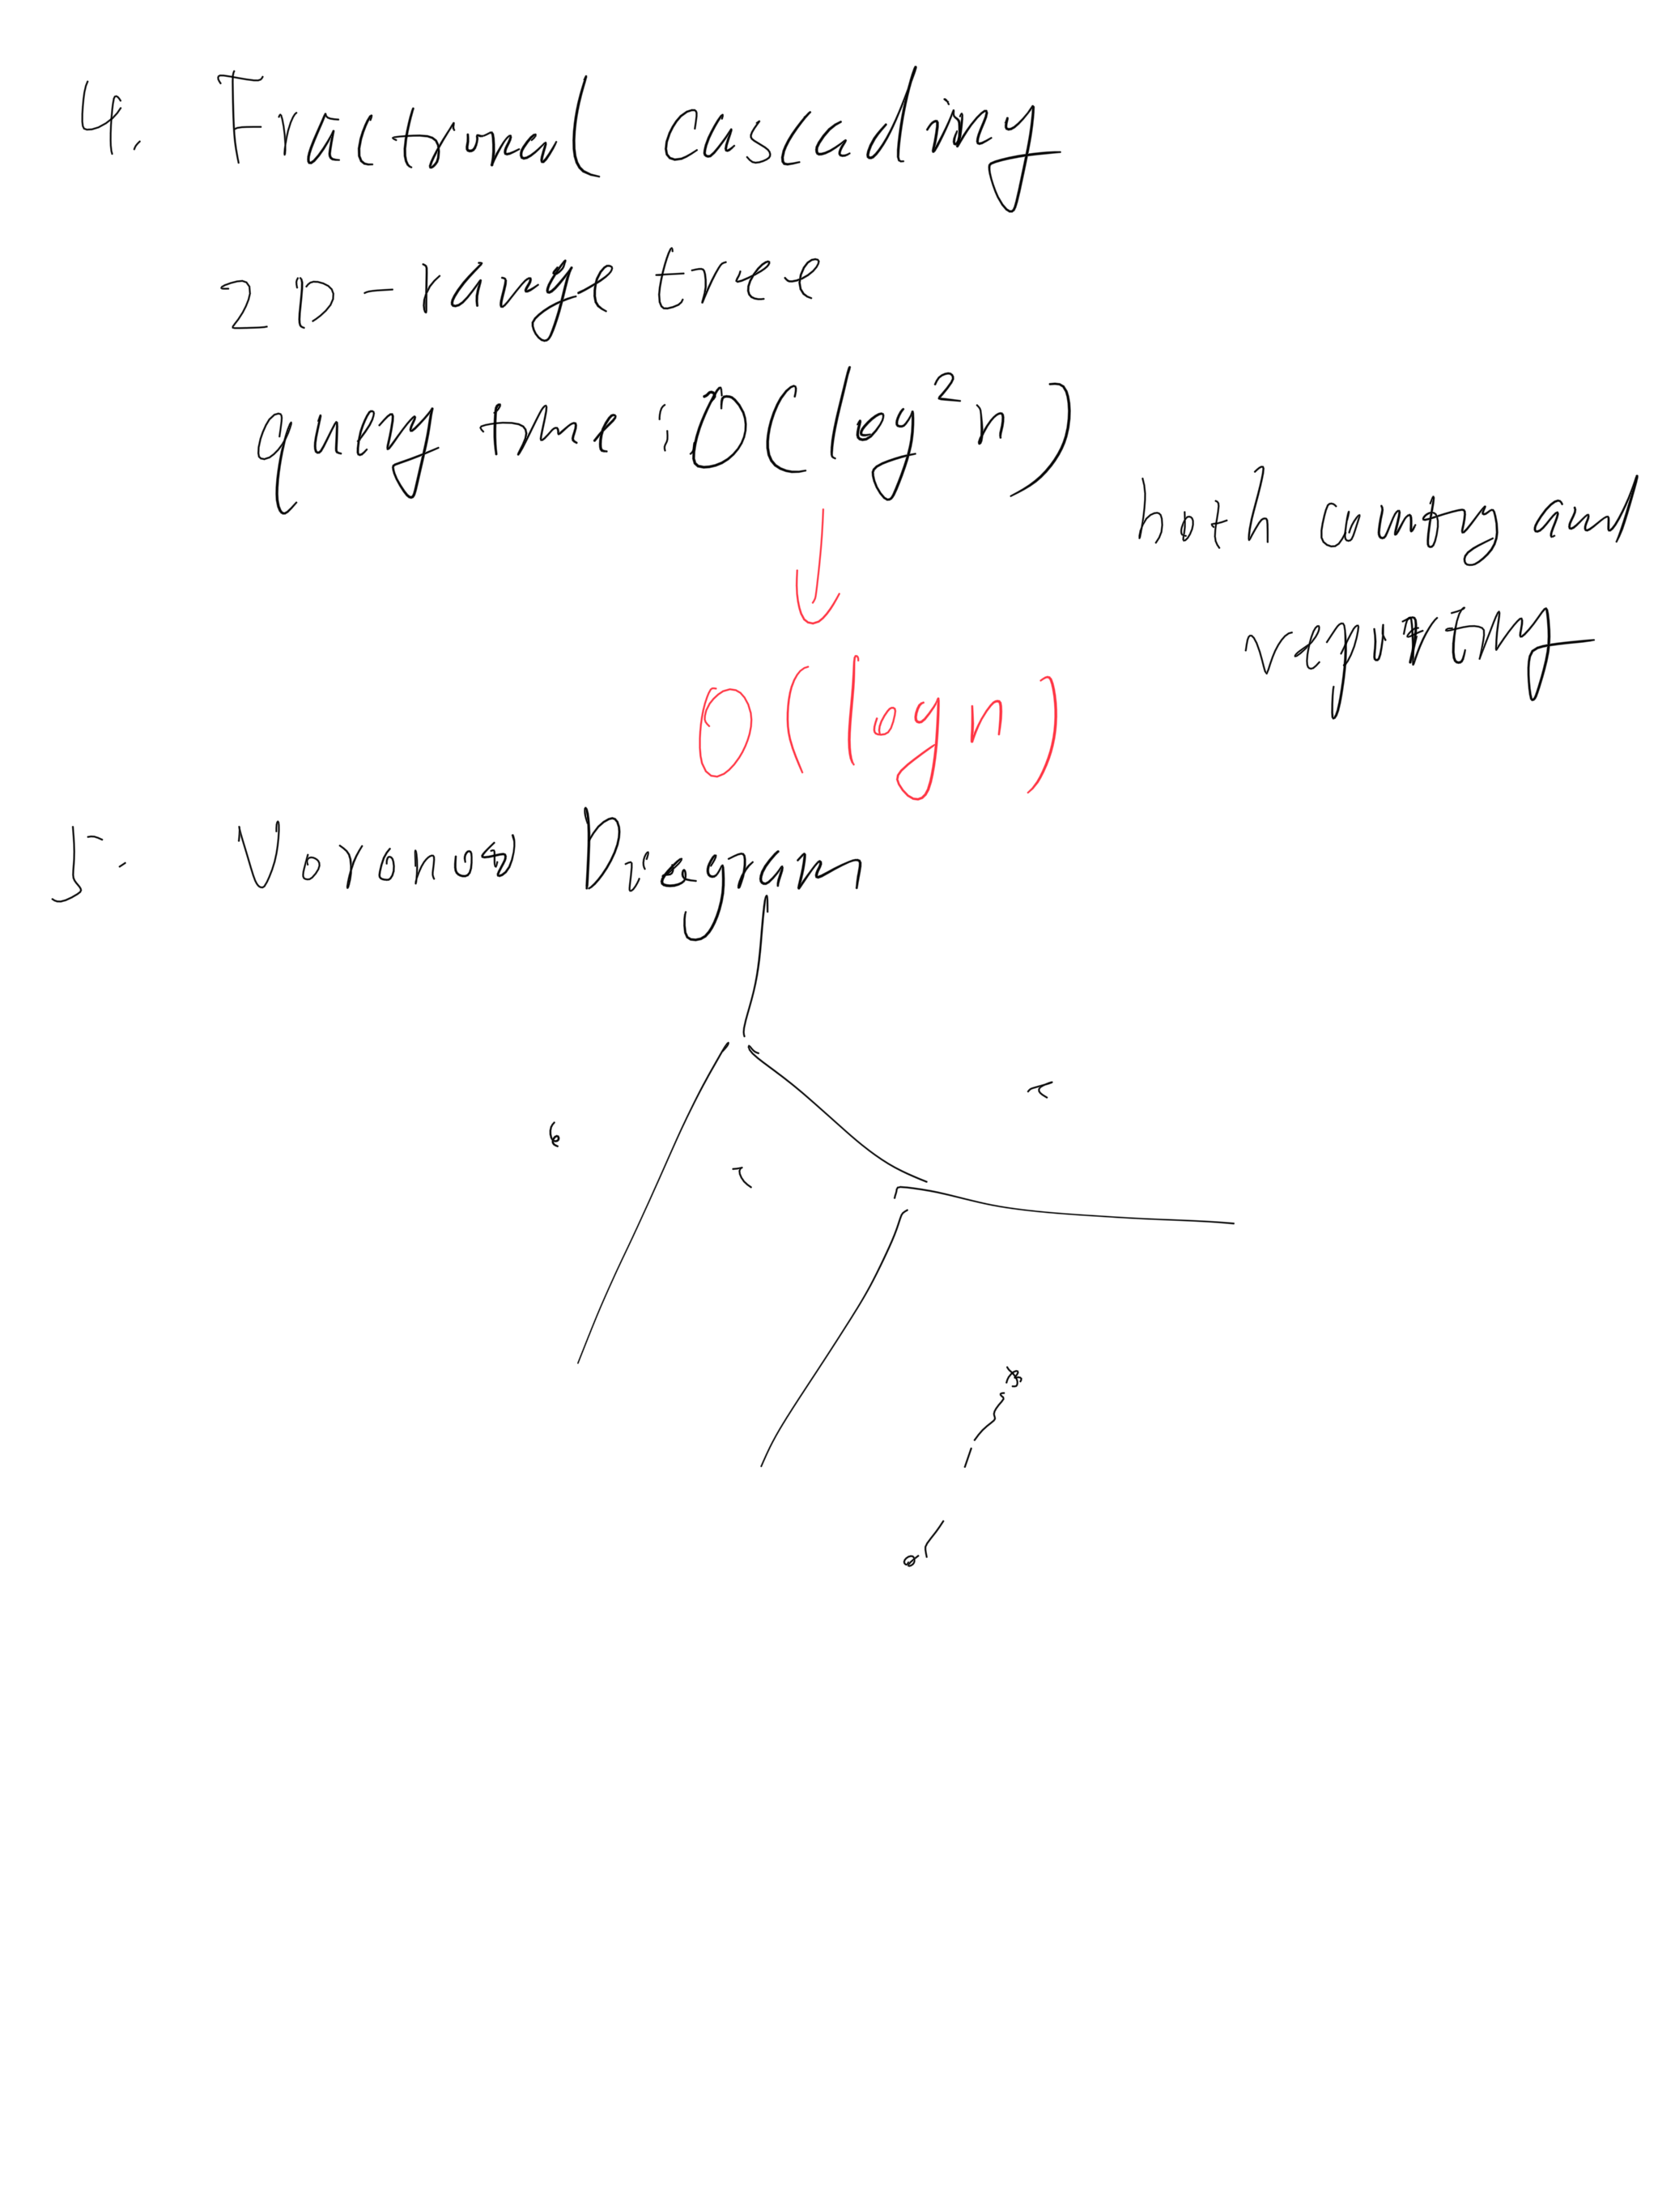 4. Fractional cascading
2D-range tree
query time : O(log²n)
both counting and
reporting
O(logn)
5. Voronoi Diagram